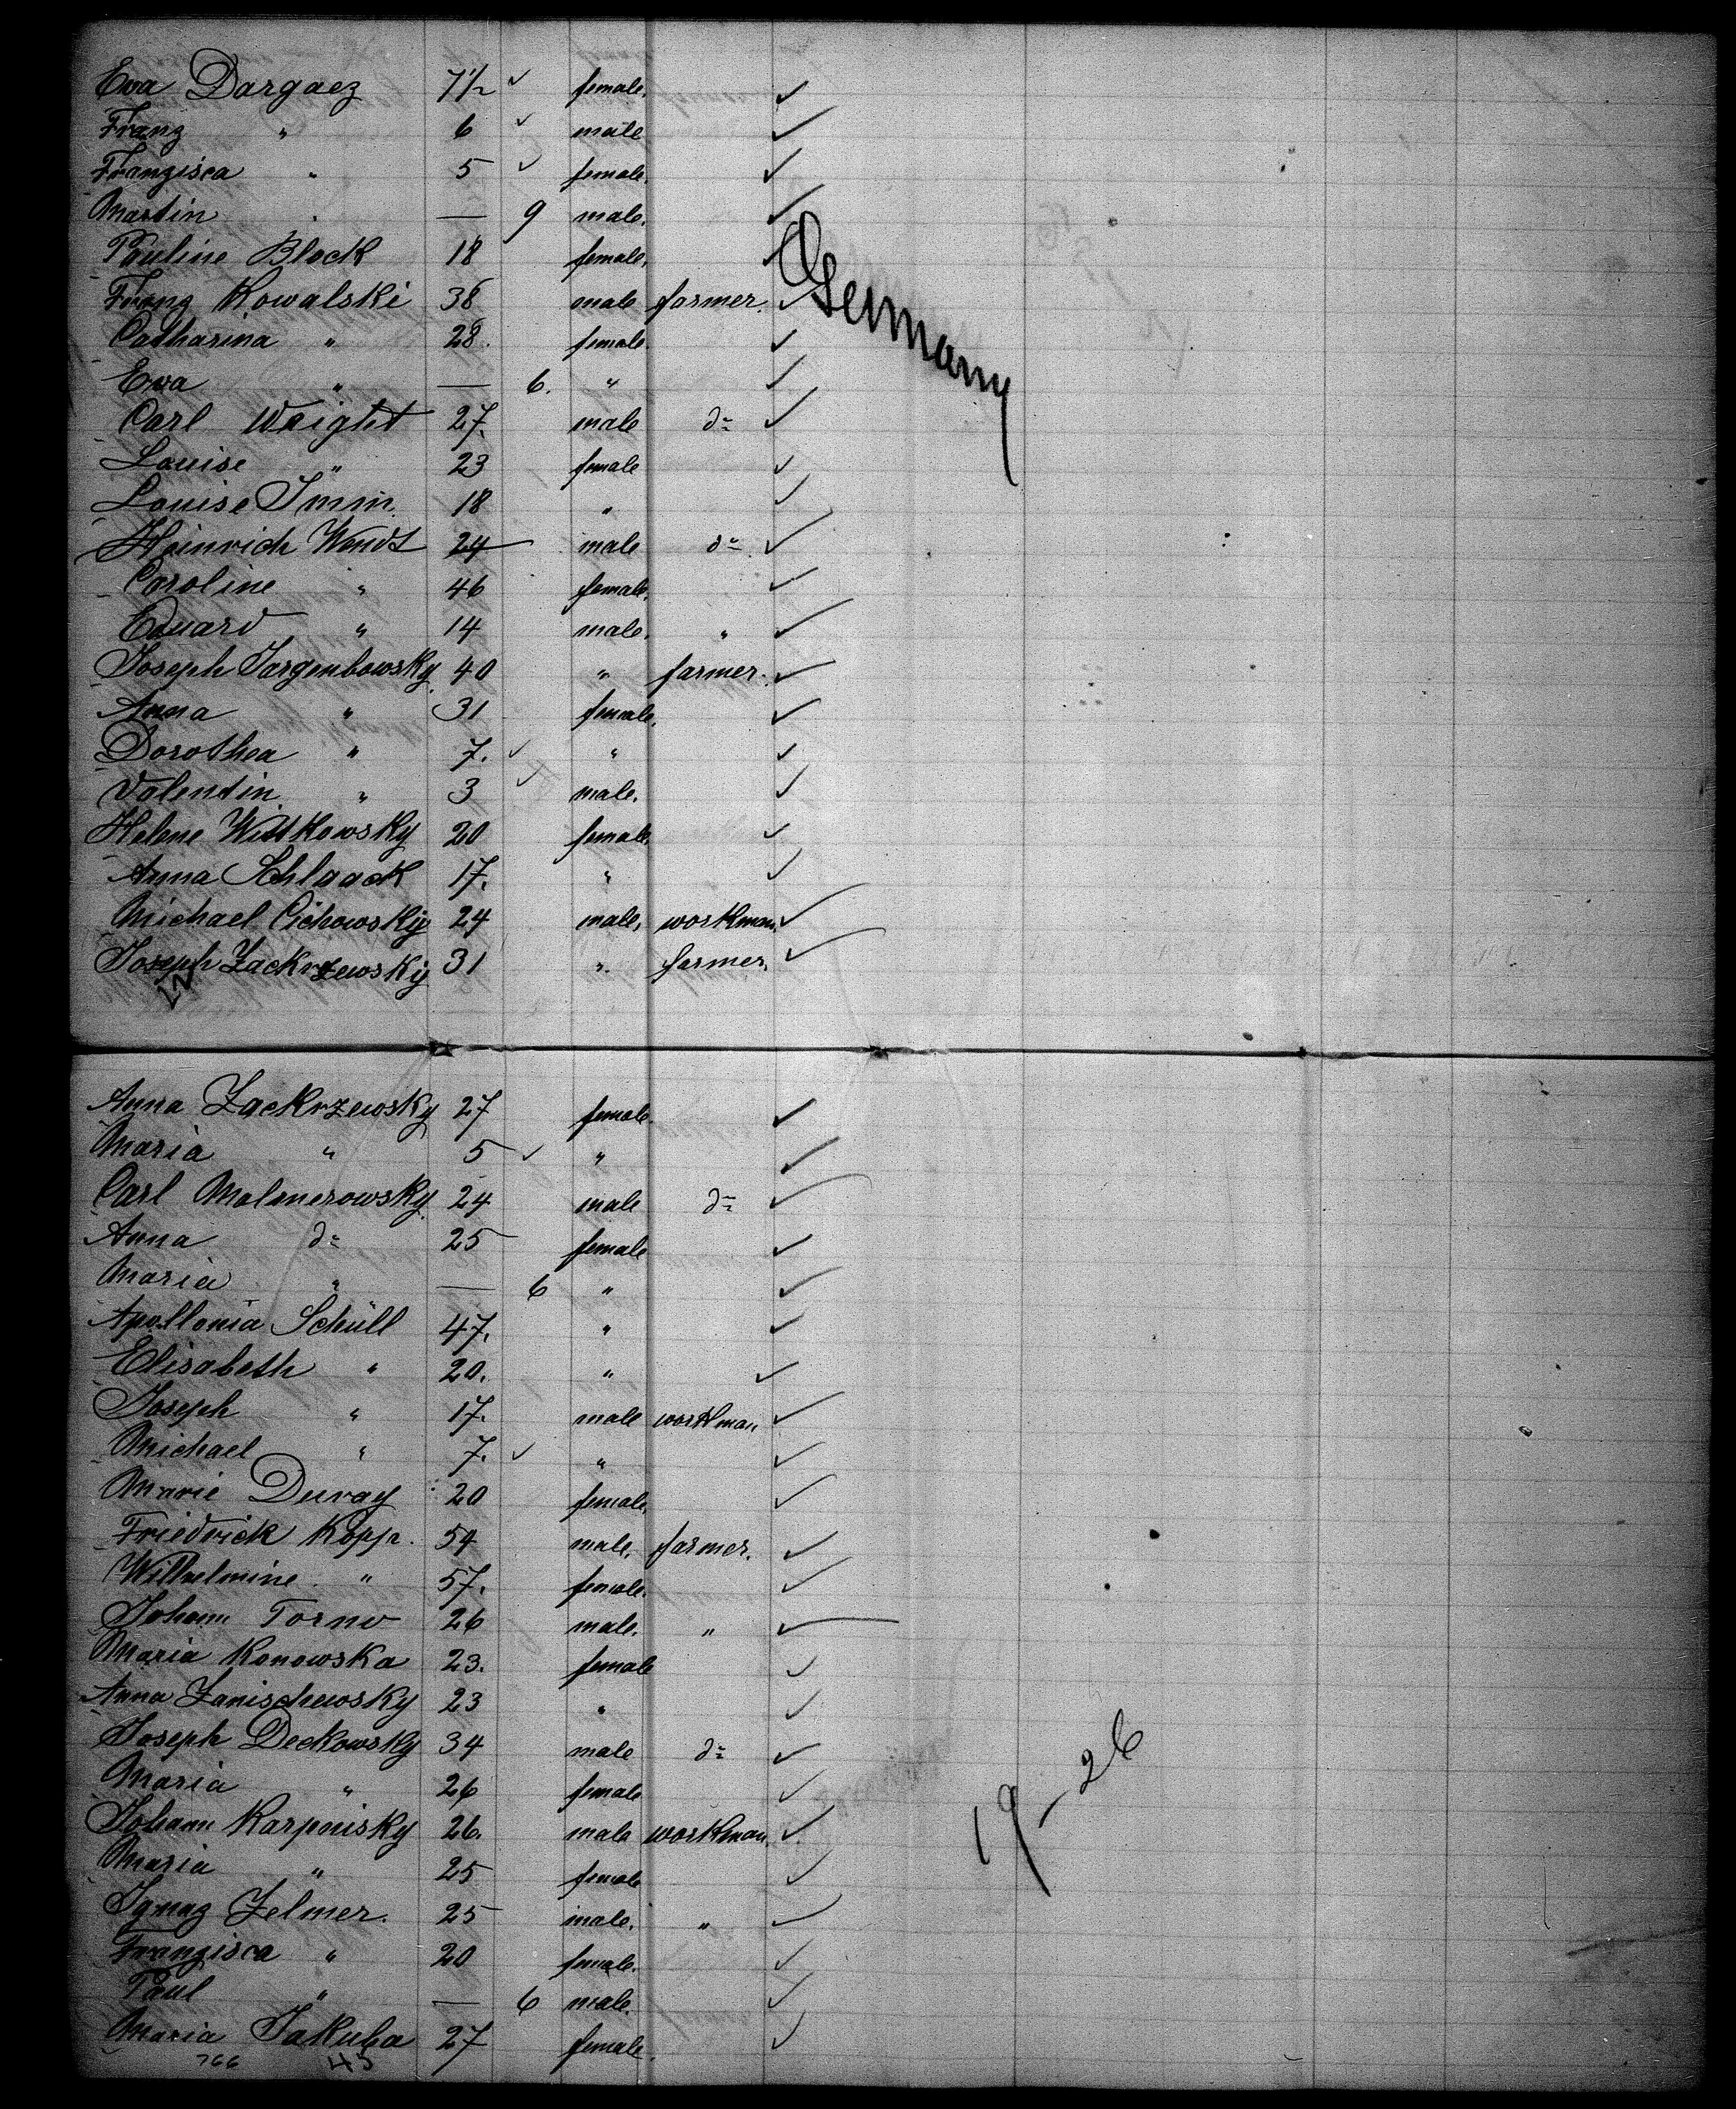 Eva Dargacz 7 1/2 ✓ female. ✓
Franz " 6 ✓ male ✓
Franzisca " 5 ✓ female. ✓
Martin " — 9 male. ✓
Pauline Block 18 female. ✓
Germany
Franz Kowalski 38 male farmer. ✓
Catharina " 28. female. ✓
Eva " — 6. " ✓
Carl Weight 27. male do ✓
Louise " 23 female ✓
Louise Imm. 18 " ✓
Heinrich Wendt 24 male do ✓
Caroline " 46 female. ✓
Eduard " 14 male. " ✓
Joseph Jargenbowsky 40 " farmer. ✓
Anna " 31 female. ✓
Dorothea " 7. ✓ " ✓
Valentin " 3 ✓ male. ✓
Helene Wittkowsky 20 female. ✓
Anna Schlaack 17. " ✓
Michael Cichowsky 24 male, workman. ✓
Joseph Zackrzewsky 31 " farmer. ✓
22
Anna Zackrzewsky 27 female. ✓
Maria " 5 ✓ " ✓
Carl Malmerowsky 24 male do ✓
Anna do 25 female ✓
Maria " — 6 " ✓
Apollonia Schüll 47. " ✓
Elisabeth " 20. " ✓
Joseph " 17. male workman ✓
Michael " 7. ✓ " ✓
Marie Duray 20 female. ✓
Friedrick Kopp. 54 male. farmer. ✓
Wilhelmine " 57. female. ✓
Johann Tornv 26 male. " ✓
Maria Konowska 23. female ✓
Anna Zanischewsky 23 " ✓
Joseph Deckowsky 34 male do ✓
Maria " 26 female ✓
19-26
Johann Karpnisky 26. male workman. ✓
Maria " 25 female ✓
Ignaz Zelmer. 25 male. " ✓
Franzisca " 20 female. ✓
Paul " — 6 male. ✓
Maria Jakuba 27 female. ✓
766 45